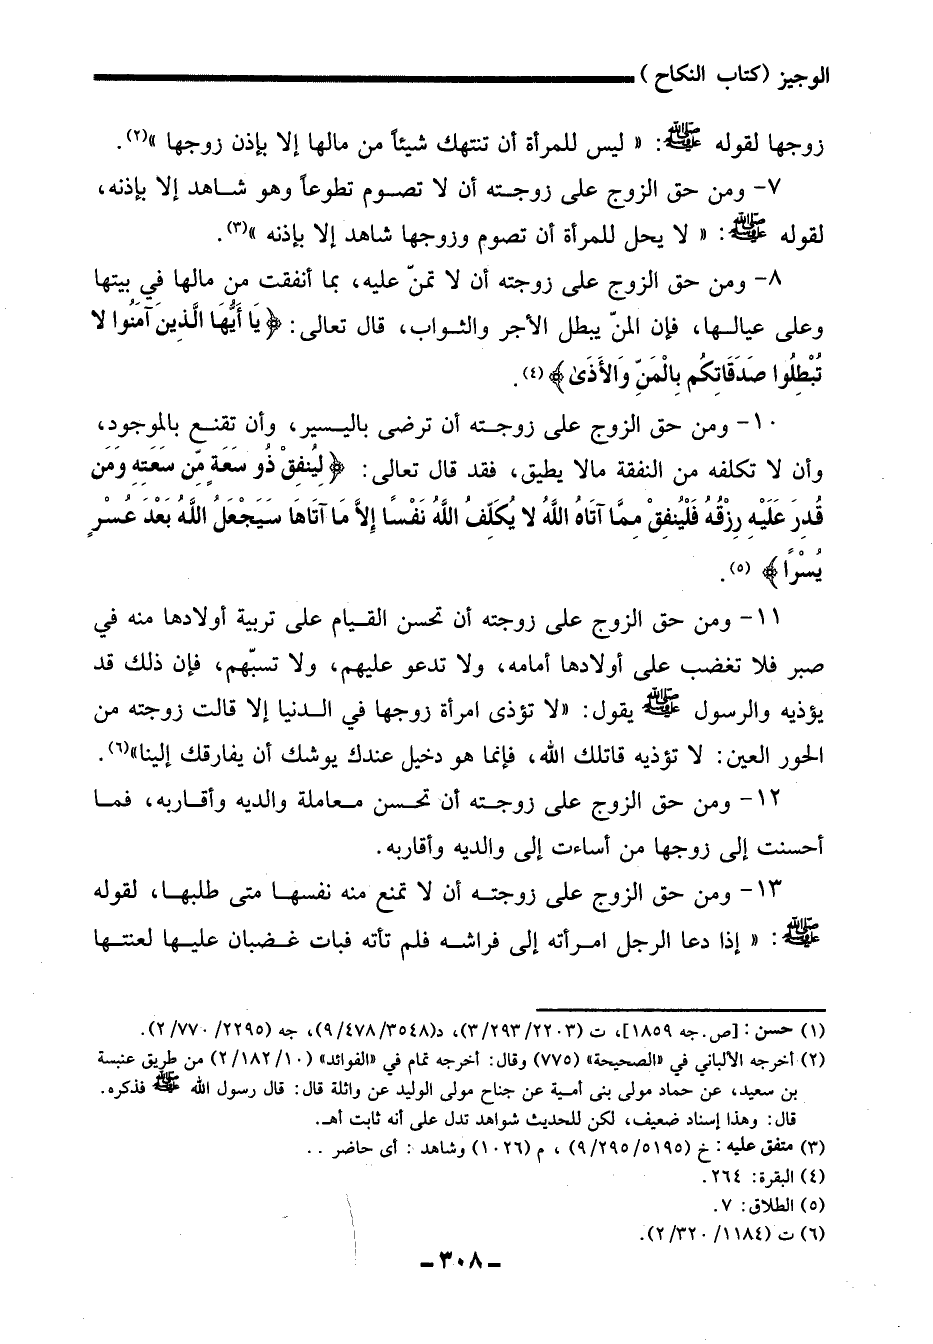 الوجيز (كتاب النكاح)
زوجها لقوله ﷺ: « ليس للمرأة أن تنتهك شيئاً من مالها إلا بإذن زوجها »(٢).
٧- ومن حق الزوج على زوجته أن لا تصوم تطوعاً وهو شاهد إلا بإذنه،
لقوله ﷺ: « لا يحل للمرأة أن تصوم وزوجها شاهد إلا بإذنه »(٣).
٨- ومن حق الزوج على زوجته أن لا تمنّ عليه، بما أنفقت من مالها في بيتها
وعلى عيالها، فإن المنّ يبطل الأجر والثواب، قال تعالى: ﴿يَا أَيُّهَا الَّذِينَ آمَنُوا لا
تُبْطِلُوا صَدَقَاتِكُم بِالْمَنِّ وَالأَذَىٰ﴾ (٤).
١٠- ومن حق الزوج على زوجته أن ترضى باليسير، وأن تقنع بالموجود،
وأن لا تكلفه من النفقة مالا يطيق، فقد قال تعالى: ﴿ لِيُنفِقْ ذُو سَعَةٍ مِّن سَعَتِهِ وَمَن
قُدِرَ عَلَيْهِ رِزْقُهُ فَلْيُنفِقْ مِمَّا آتَاهُ اللَّهُ لا يُكَلِّفُ اللَّهُ نَفْسًا إِلاَّ مَا آتَاهَا سَيَجْعَلُ اللَّهُ بَعْدَ عُسْرٍ
يُسْرًا﴾ (٥).
١١- ومن حق الزوج على زوجته أن تحسن القيام على تربية أولادها منه في
صبر فلا تغضب على أولادها أمامه، ولا تدعو عليهم، ولا تسبّهم، فإن ذلك قد
يؤذيه والرسول ﷺ يقول: «لا تؤذى امرأة زوجها في الدنيا إلا قالت زوجته من
الحور العين: لا تؤذيه قاتلك الله، فإنما هو دخيل عندك يوشك أن يفارقك إلينا»(٦).
١٢- ومن حق الزوج على زوجته أن تحسن معاملة والديه وأقاربه، فما
أحسنت إلى زوجها من أساءت إلى والديه وأقاربه.
١٣- ومن حق الزوج على زوجته أن لا تمنع منه نفسها متى طلبها، لقوله
ﷺ: « إذا دعا الرجل امرأته إلى فراشه فلم تأته فبات غضبان عليها لعنتها
(١) حسن: [ص.جه ١٨٥٩]، ت (٣/٢٩٣/٢٢٠٣)، د(٩/٤٧٨/٣٥٤٨)، جه (٢/٧٧٠/٢٢٩٥).
(٢) أخرجه الألباني في «الصحيحة» (٧٧٥) وقال: أخرجه تمام في «الفوائد» (٢/١٨٢/١٠) من طريق عنبسة
بن سعيد، عن حماد مولى بنى أمية عن جناح مولى الوليد عن واثلة قال: قال رسول الله ﷺ فذكره.
قال: وهذا إسناد ضعيف، لكن للحديث شواهد تدل على أنه ثابت أهـ.
(٣) متفق عليه: خ (٩/٢٩٥/٥١٩٥) ، م (١٠٢٦) وشاهد : أى حاضر ..
(٤) البقرة: ٢٦٤.
(٥) الطلاق: ٧.
(٦) ت (٢/٣٢٠/١١٨٤).
- ٣٠٨ -